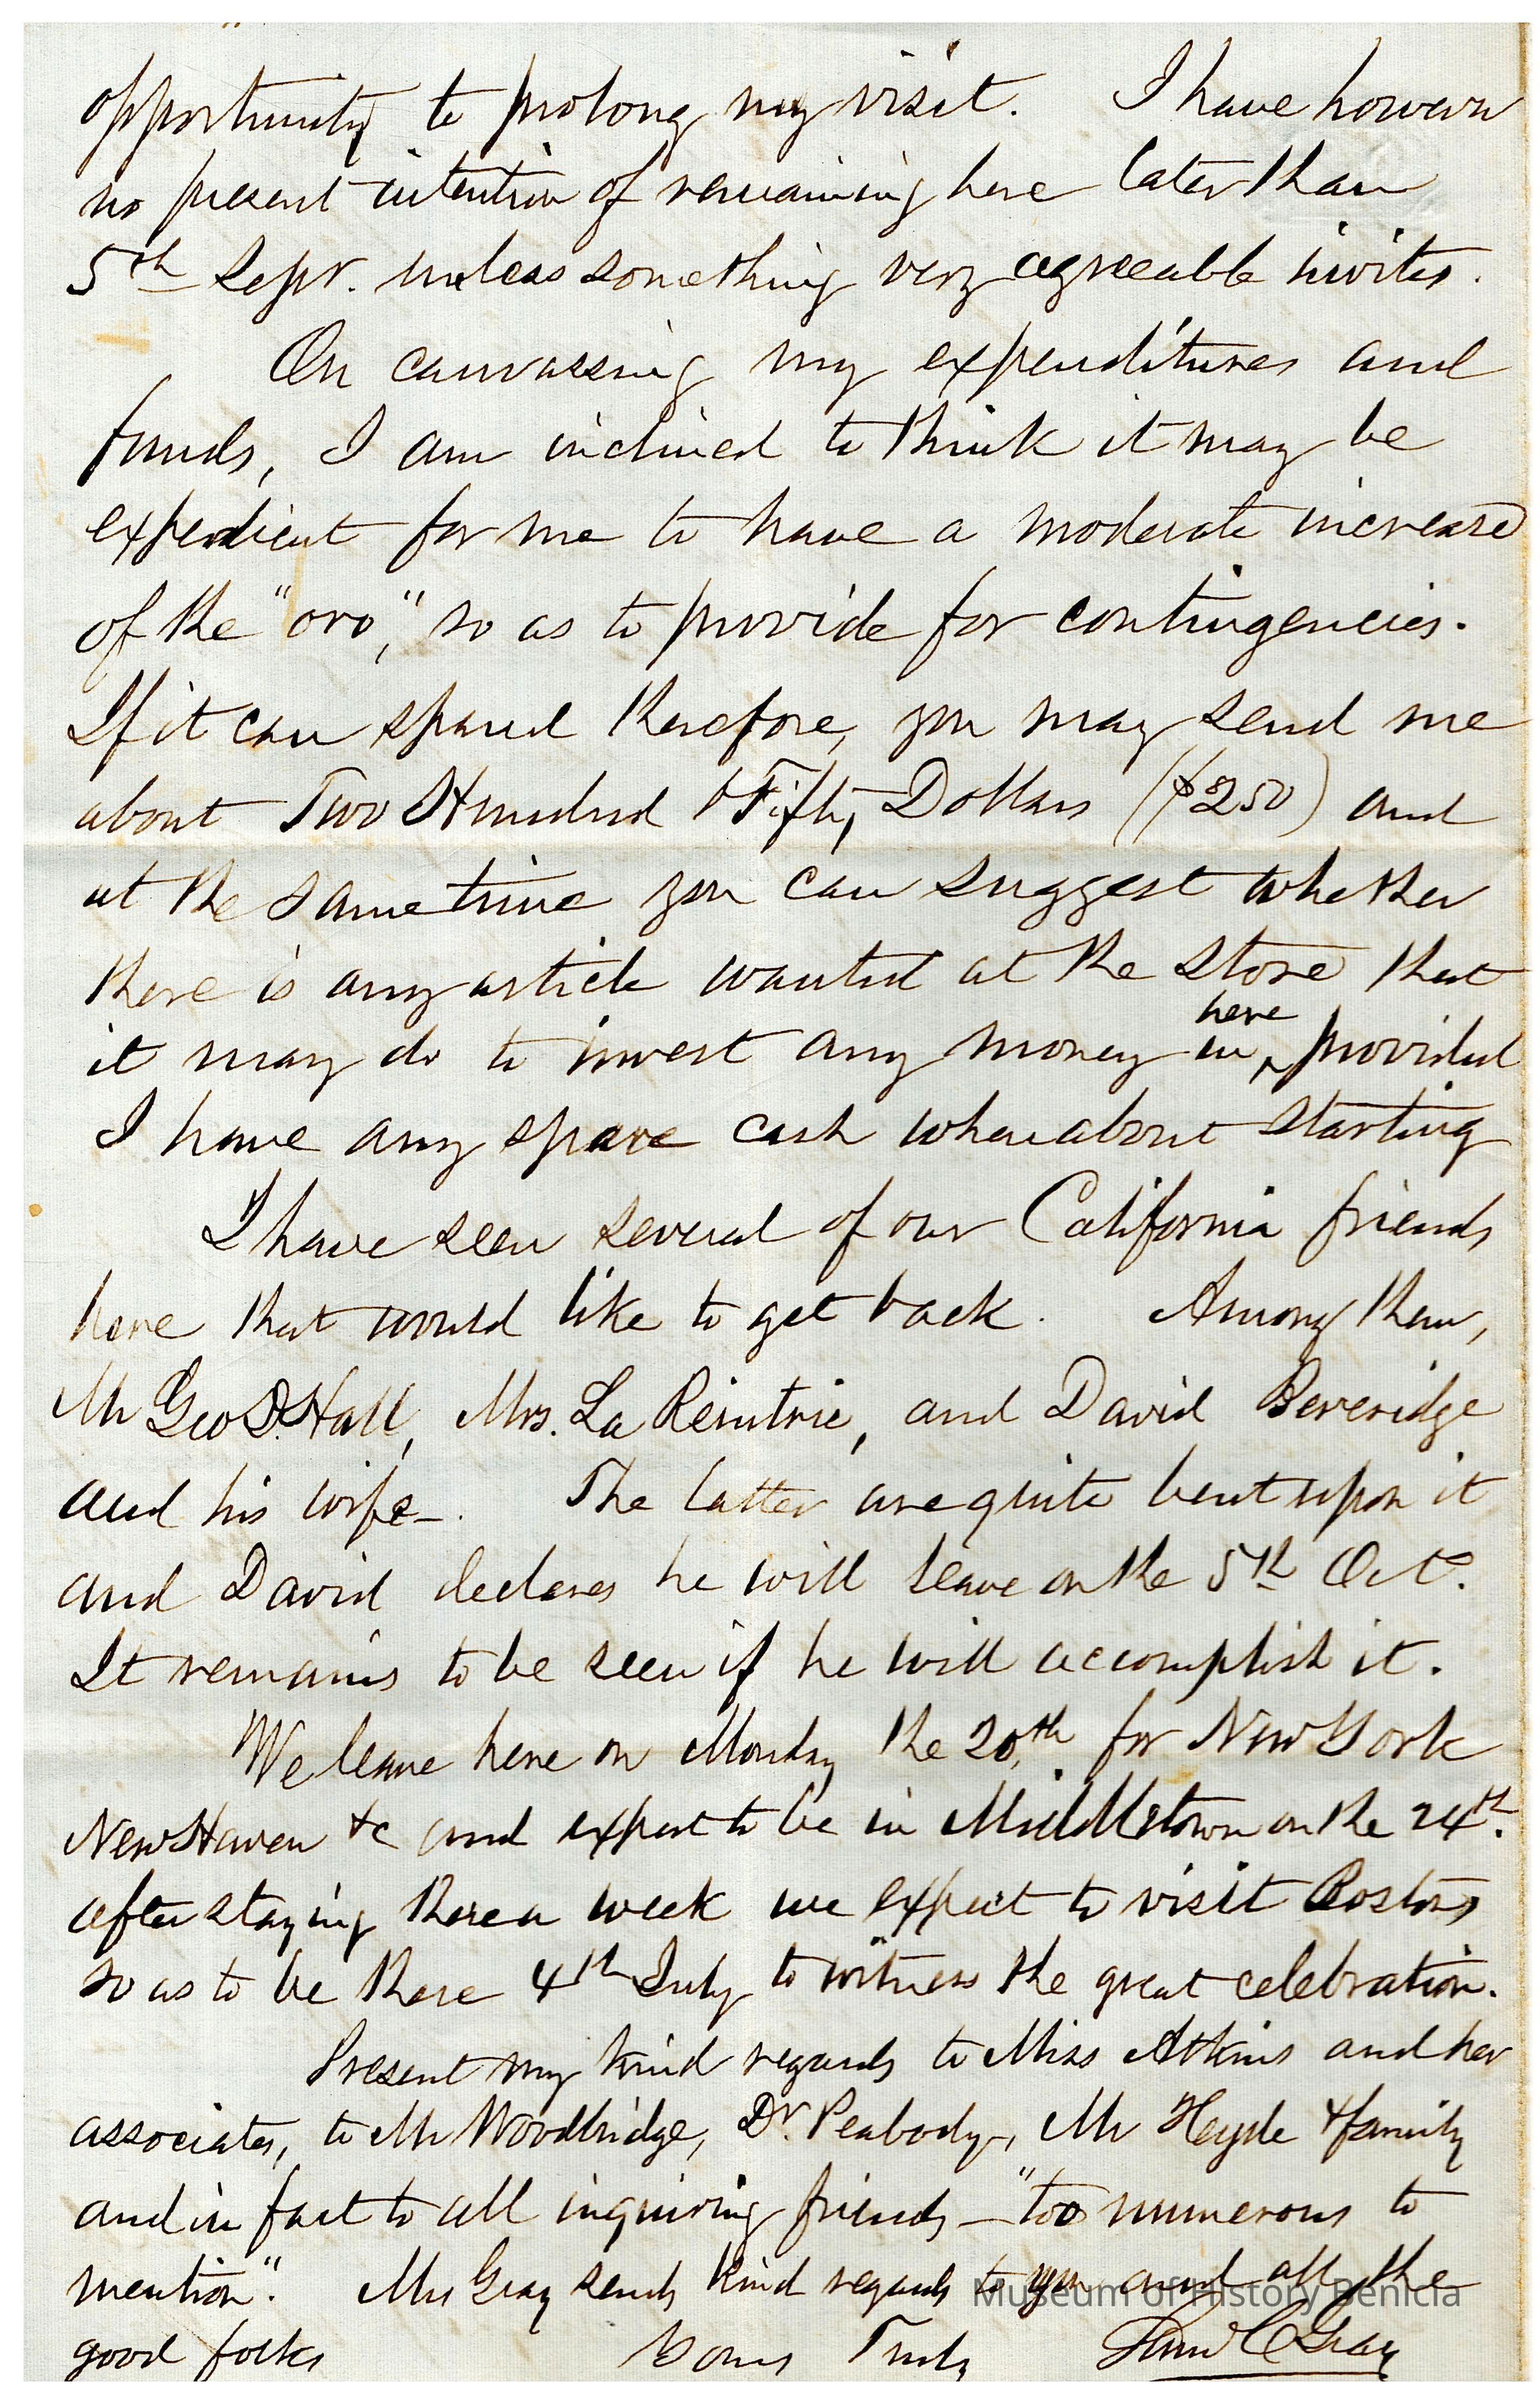 opportunity to prolong my visit. I have however
no present intention of remaining here later than
5th Sept. unless something very agreeable invites.
On canvassing my expenditures and
funds, I am inclined to think it may be
expendient for me to have a moderate increase
of the "oro," so as to provide for contingencies.
If it can spared therefore, you may send me
about Two Hundred & Fifty Dollars ($250) and
at the same time you can suggest whether
there is any article wanted at the store that
it may do to invest any money in here provided
I have any spare cash when about starting
I have seen several of our California friends
here that would like to get back. Among them,
Mr Geo D. Hall, Mrs. La Reintrie, and David Beveridge
and his wife. The latter are quite bent upon it
and David declares he will leave on the 5th Oct.
It remains to be seen if he will accomplish it.
We leave here on Monday the 20th for New York
New Haven &c and expect to be in Middletown on the 24th.
after staying there a week we expect to visit Boston
so as to be there 4th July to witness the great celebration.
Present my kind regards to Miss Atkins and her
associates, to Mr Woodbridge, Dr. Peabody, Mr Heyde & family
and in fact to all inquiring friends - "too numerous to
mention". Mrs Gray sends kind regards to you and all the
good folks Yours Truly Saml C Gray
Museum of History Benicia